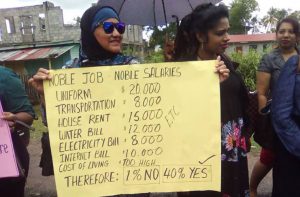 NOBLE JOB NOBLE SALARIES
UNIFORM $ 20.000
TRANSPORTATION $ 8.000
HOUSE RENT $ 15.000
WATER BILL $ 12.000
ELECTRICITY BILL $ 8.000
INTERNET BILL $ 10.000
COST OF LIVING $ TOO HIGH
ETC
THEREFORE: 1% NO 40% YES